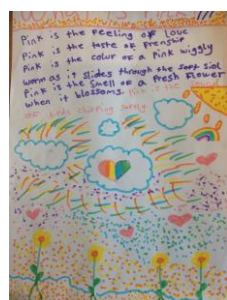 Pink is the Feeling of Love
Pink is the taste of Frenship
Pink is the colur of a Pink wiggly
worm as it slides through the soft soil
Pink is the smell of a Fresh Flower
when it blossoms. Pink is the
of birds chirping softly